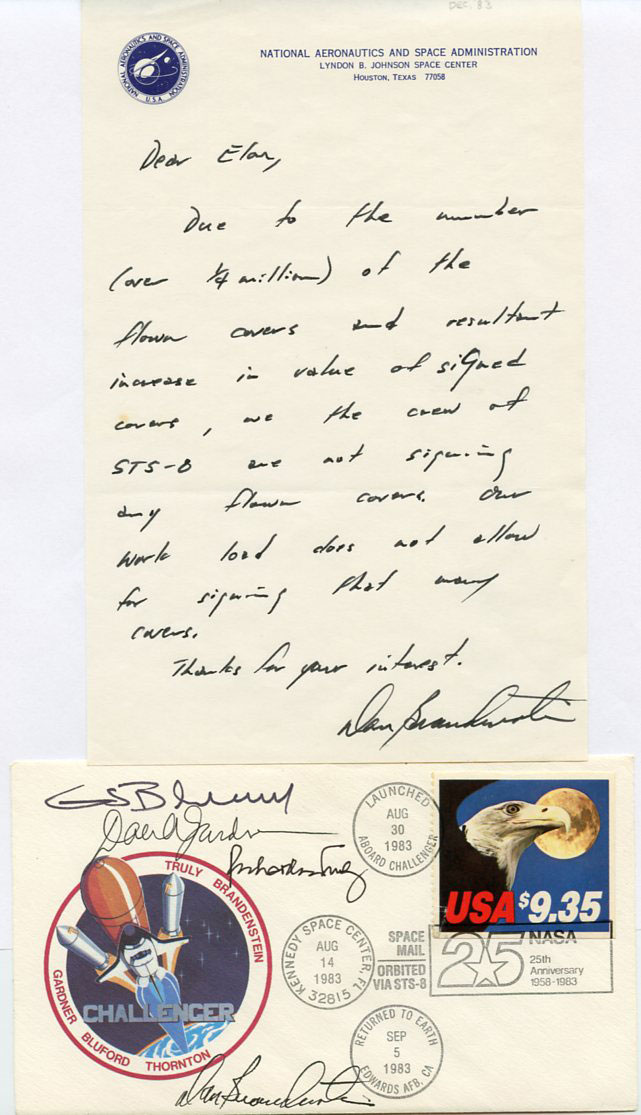 DEC. 83
NATIONAL AERONAUTICS AND SPACE ADMINISTRATION
U.S.A.
NATIONAL AERONAUTICS AND SPACE ADMINISTRATION
LYNDON B. JOHNSON SPACE CENTER
HOUSTON, TEXAS 77058
Dear Elan,
Due to the number
(over 1/4 million) of the
flown covers and resultant
increase in value of signed
covers, we the crew of
STS-8 are not signing
any flown covers. Our
work load does not allow
for signing that many
covers.
Thanks for your interest.
Dan Brandenstein
LAUNCHED
AUG
30
1983
ABOARD CHALLENGER
USA $9.35
TRULY BRANDENSTEIN
GARDNER BLUFORD THORNTON
CHALLENGER
KENNEDY SPACE CENTER, FL
AUG
14
1983
32815
SPACE
MAIL
ORBITED
VIA STS-8
25
NASA
25th
Anniversary
1958-1983
RETURNED TO EARTH
SEP
5
1983
EDWARDS AFB, CA
Dan Brandenstein